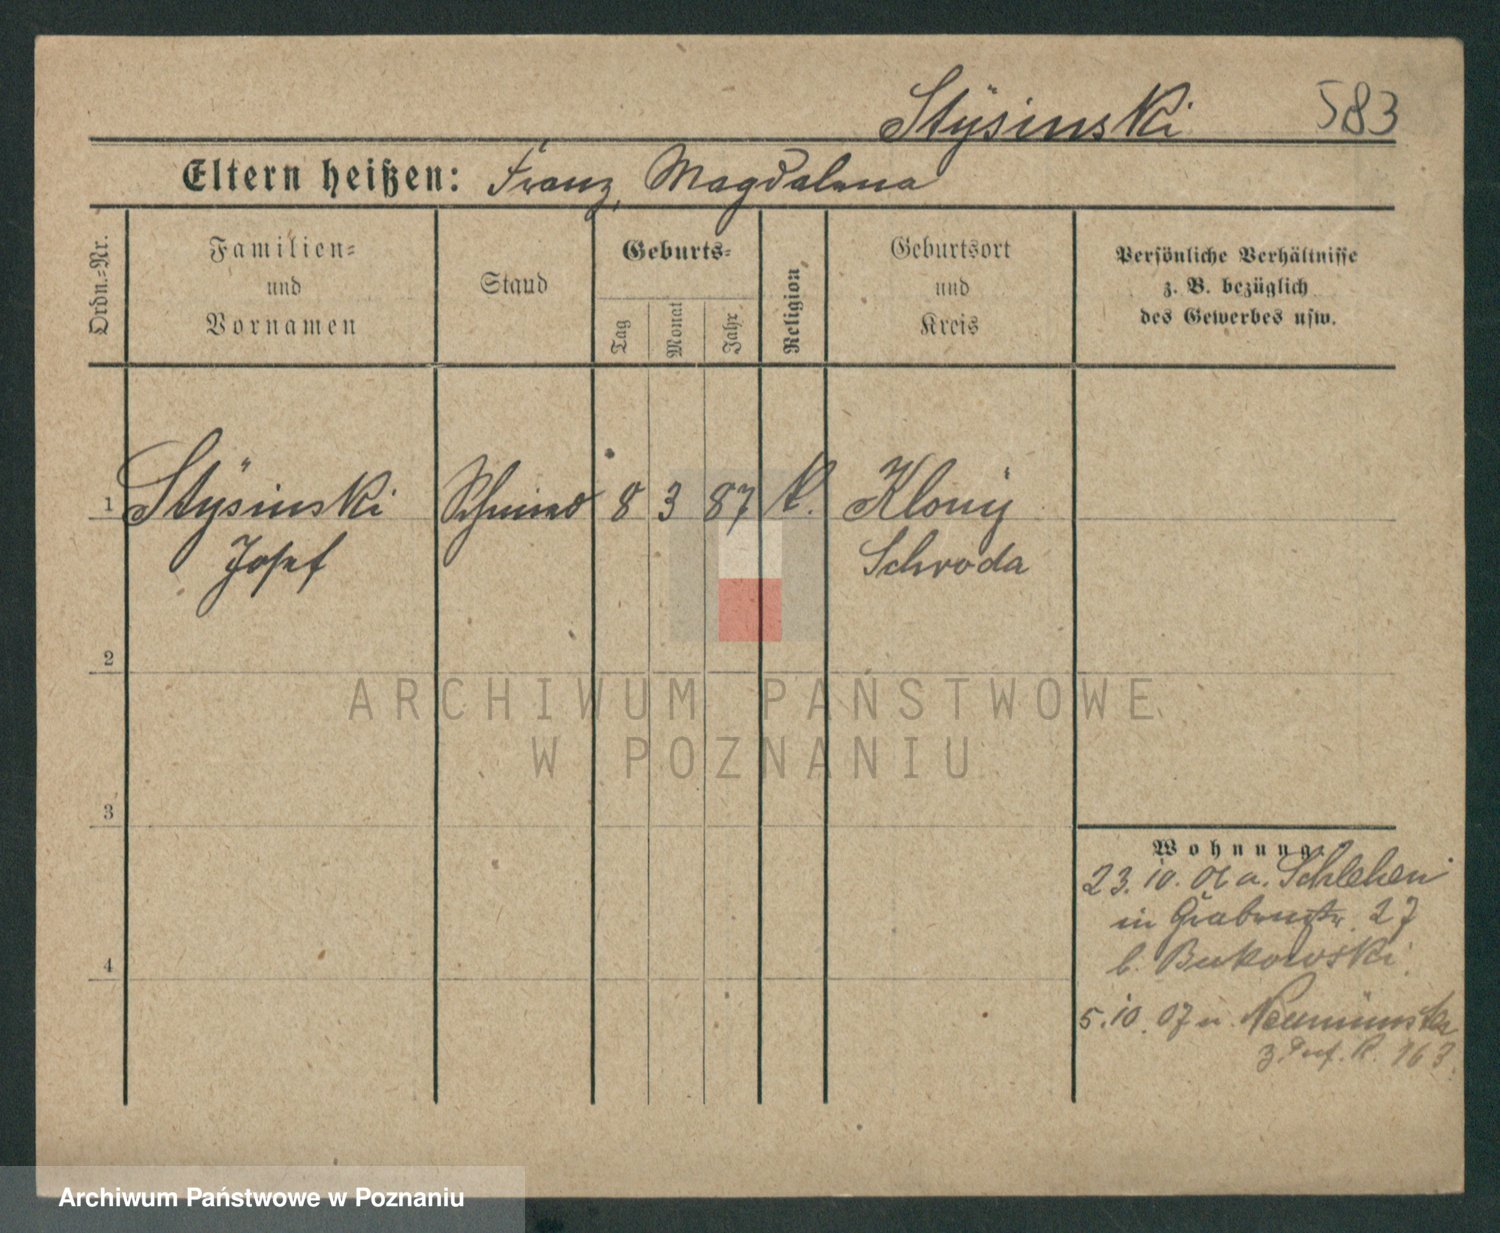 Stÿsinski 583
Eltern heißen: Franz, Magdalena
Ordn.=Nr.
Familien=
und
Vornamen
Stand
Geburts=
Tag
Monat
Jahr
Religion
Geburtsort
und
Kreis
Persönliche Verhältnisse
z. B. bezüglich
des Gewerbes usw.
1 Stÿsinski Schmied 8 3 87 k. Klony
Josef Schroda
2
ARCHIWUM PAŃSTWOWE
W POZNANIU
3
Wohnung.
23. 10. 06 a. Schlehen
in Grabenstr. 27
b. Bukowski
4
5. 10. 07 n. Neumünster
z. Inf. R. 163.
Archiwum Państwowe w Poznaniu